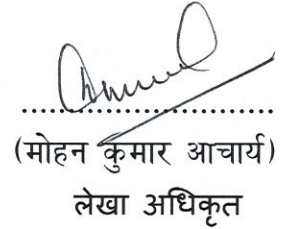 ..............................
(मोहन कुमार आचार्य)
लेखा अधिकृत